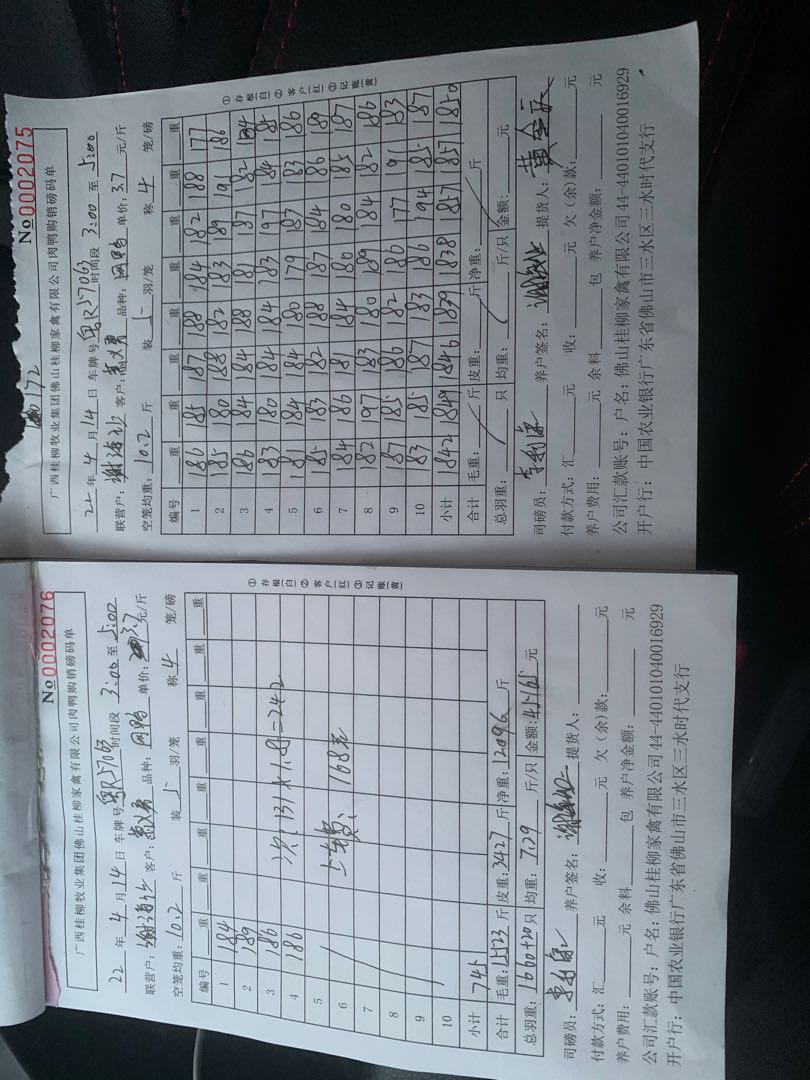 No0002076
广西桂柳牧业集团佛山桂柳家禽有限公司肉鸭购销磅码单
22 年 4 月 14 日 车牌号 粤R57063 时间段 3:00 至 5:00
联营户: 谢海 客户: 品种: 网鸭 单价: 3.7 元/斤
空笼均重: 10.2 斤 装 5 羽/笼 称 4 笼/磅
编号 重 重 重 重 重 重 重 重
1 184
2 189
3 186
4 186 次: 131×1.85=242
5
6 168元
7
8
9
10
小计 745
合计 毛重: 15523 斤 皮重: 3427 斤 净重: 12096 斤
总羽重: 1600+20 只 均重: 7.29 斤/只 金额: 45165 元
司磅员: 养户签名: 提货人:
付款方式: 汇 元 收: 元 欠(余)款: 元
养户费用: 元 余料 包 养户净金额: 元
公司汇款账号: 户名: 佛山桂柳家禽有限公司 44-440101040016929
开户行: 中国农业银行广东省佛山市三水区三水时代支行
①存根(白) ②客户(红) ③记账(黄)
172
No0002075
广西桂柳牧业集团佛山桂柳家禽有限公司肉鸭购销磅码单
22 年 4 月 14 日 车牌号 粤R57063 时间段 3:00 至 5:00
联营户: 谢海 客户: 品种: 网鸭 单价: 3.7 元/斤
空笼均重: 10.2 斤 装 5 羽/笼 称 4 笼/磅
编号 重 重 重 重 重 重 重 重
1 186 185 187 188 184 182 188 177
2 185 180 188 182 183 189 191 186
3 186 184 184 188 181 187 182 184
4 183 180 184 184 183 197 184 185
5 181 184 184 180 179 183 183 186
6 185 183 182 188 187 184 186 189
7 184 186 181 184 180 180 185 187
8 182 197 183 180 189 184 182 186
9 187 185 186 182 186 177 191 183
10 183 185 187 183 186 194 185 187
小计 1842 1849 1846 1839 1838 1857 1857 1850
合计 毛重: 斤 皮重: 斤 净重: 斤
总羽重: 只 均重: 斤/只 金额: 元
司磅员: 养户签名: 提货人:
付款方式: 汇 元 收: 元 欠(余)款: 元
养户费用: 元 余料 包 养户净金额: 元
公司汇款账号: 户名: 佛山桂柳家禽有限公司 44-440101040016929
开户行: 中国农业银行广东省佛山市三水区三水时代支行
①存根(白) ②客户(红) ③记账(黄)